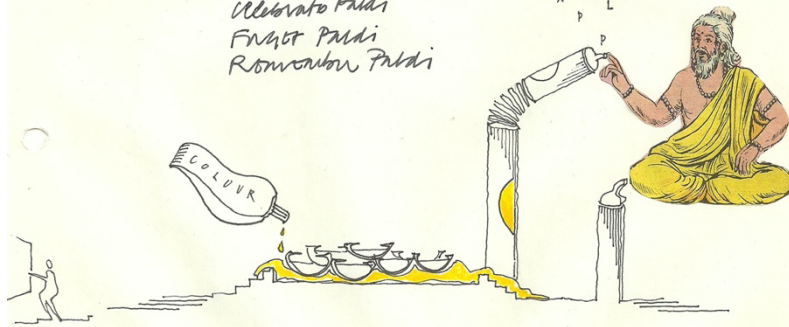 Celebrate Paldi
Forget Paldi
Remember Paldi
L
P
P
COLOUR